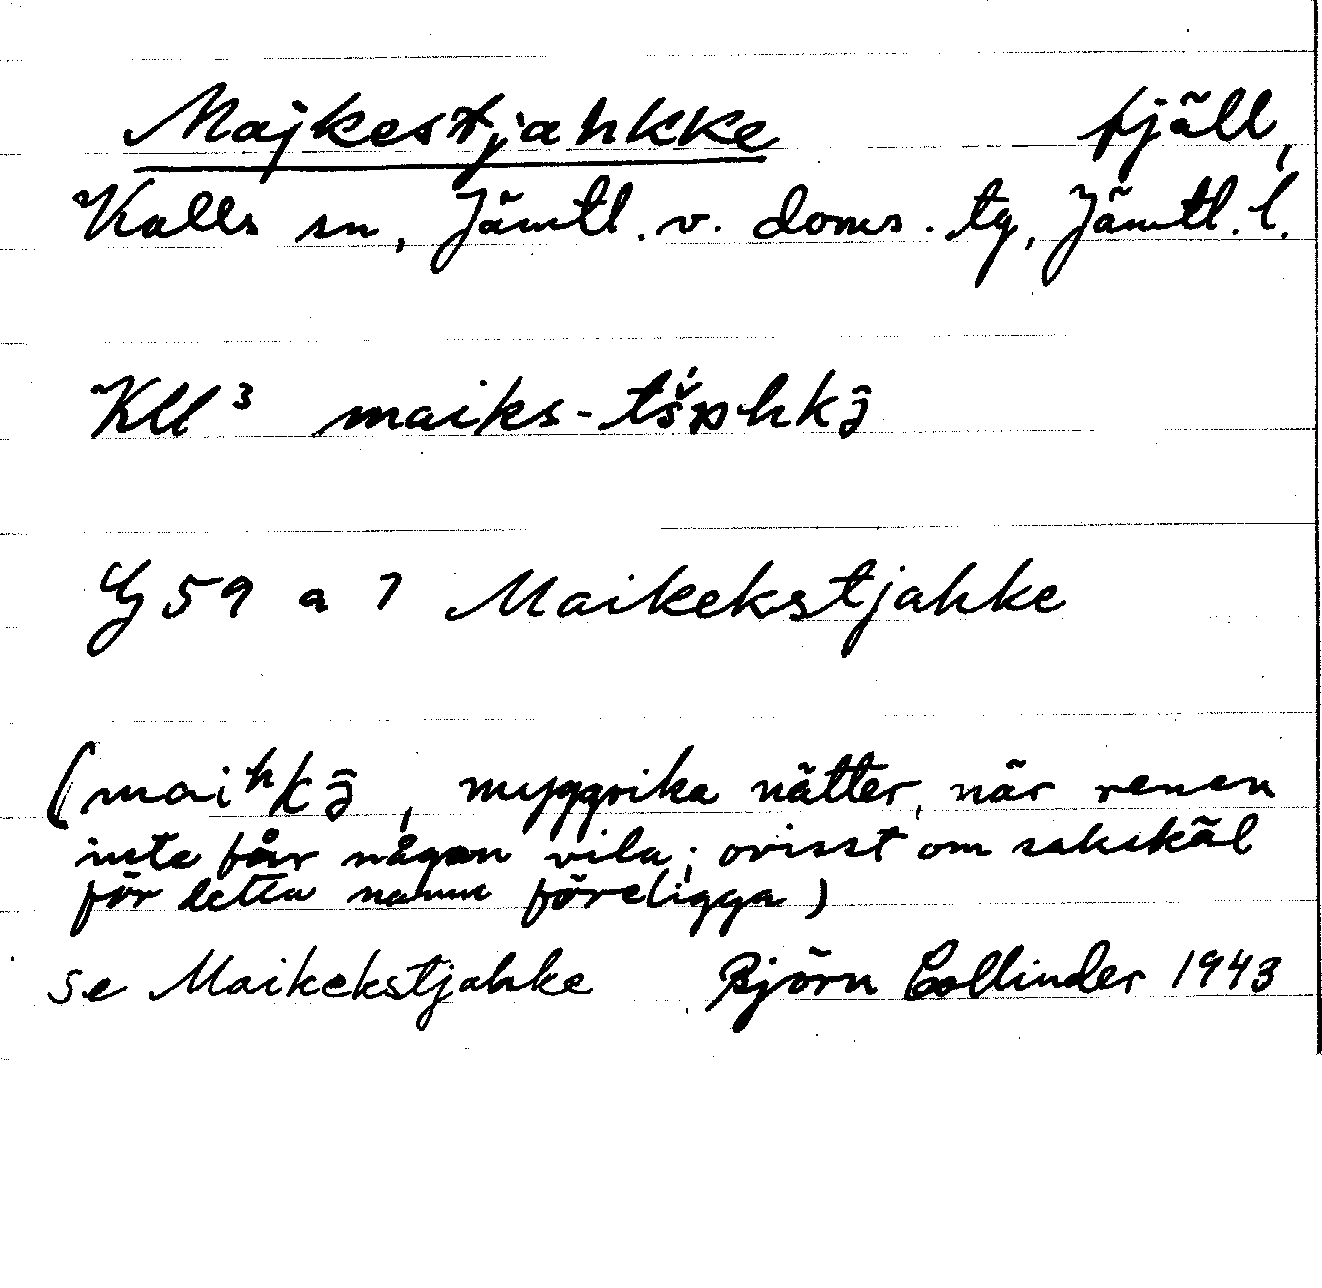 Majkestjahkke fjäll,
Kalls sn, Jämtl. v. doms. tg, Jämtl. l.
Kll³ maiks-
G 59 a 7 Maikekstjahke
myggrika nätter, när renen
inte får någon vila; ovisst om sakskäl
för detta namn föreligga)
se Maikekstjahke Björn Collinder 1943